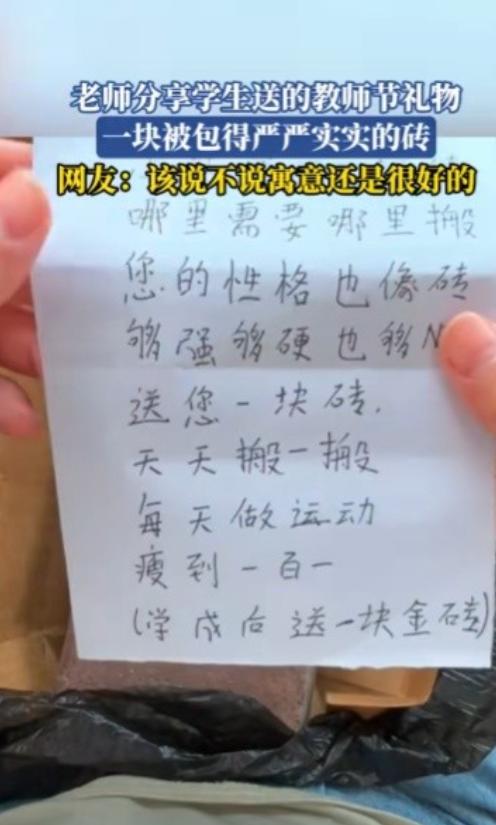 老师分享学生送的教师节礼物
一块被包得严严实实的砖
网友：该说不说寓意还是很好的
哪里需要哪里搬
您的性格也像砖
够强够硬也够N
送您一块砖，
天天搬一搬
每天做运动
瘦到一百一
(学成后送一块金砖)